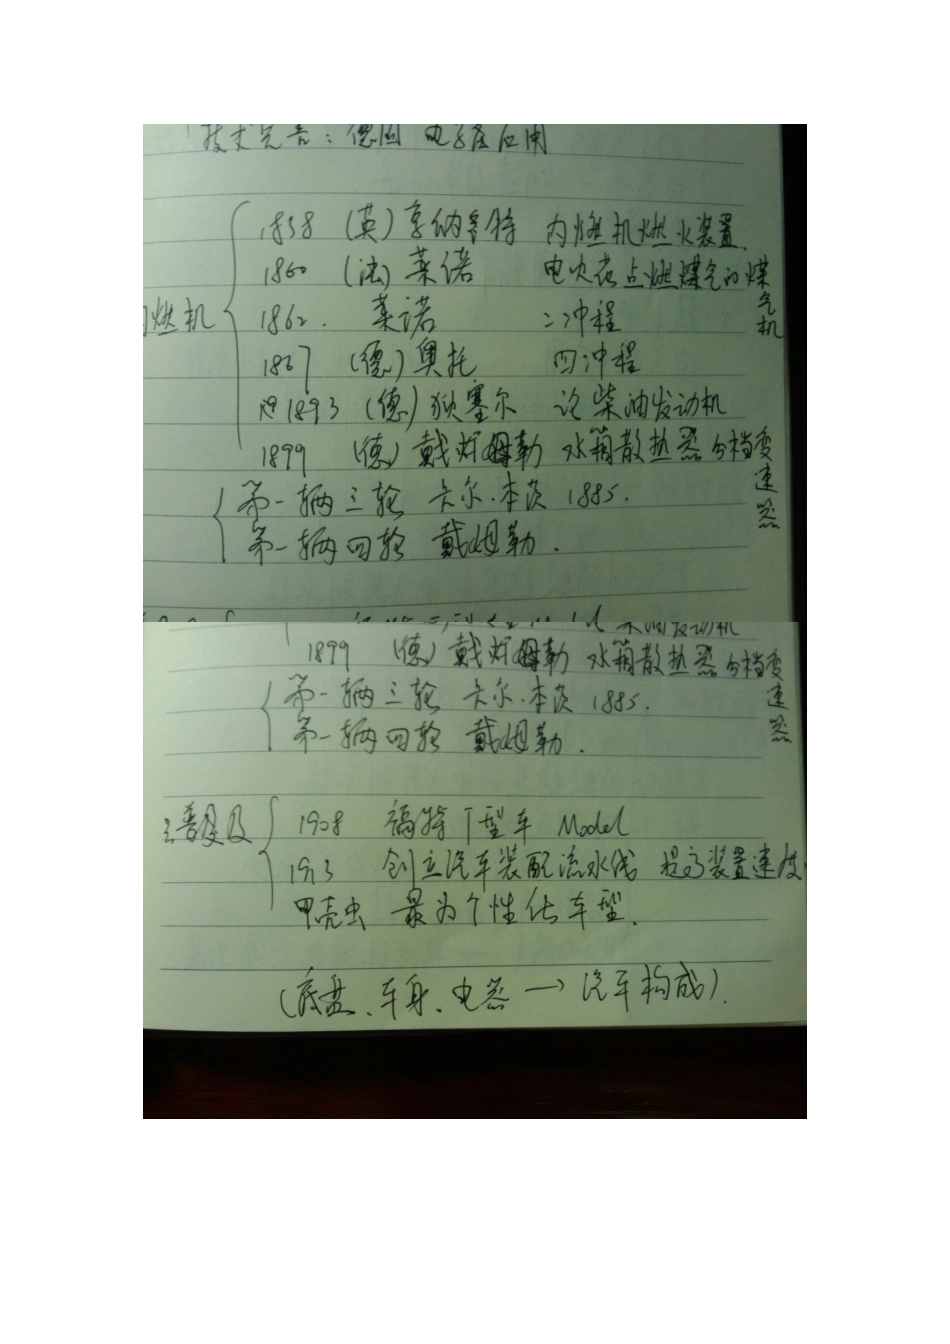 技术完善：德国 电子应用
1838 （英）亨纳特 内燃机燃火装置.
1860 （法）莱诺 电火花点燃煤气的煤气机
燃机
1862. 莱诺 二冲程
1867 （德）奥托 四冲程
1893 （德）狄塞尔 论柴油发动机
1899 （德）戴姆勒 水箱散热器 分档变速器
第一辆三轮 卡尔·本茨 1885.
第一辆四轮 戴姆勒.
柴油发动机
1899 （德）戴姆勒 水箱散热器 分档变速器
第一辆三轮 卡尔·本茨 1885.
第一辆四轮 戴姆勒.
普及 1908 福特T型车 Model
1913 创立汽车装配流水线 提高装置速度
甲壳虫 最为个性化车型.
（底盘、车身、电器 → 汽车构成）.